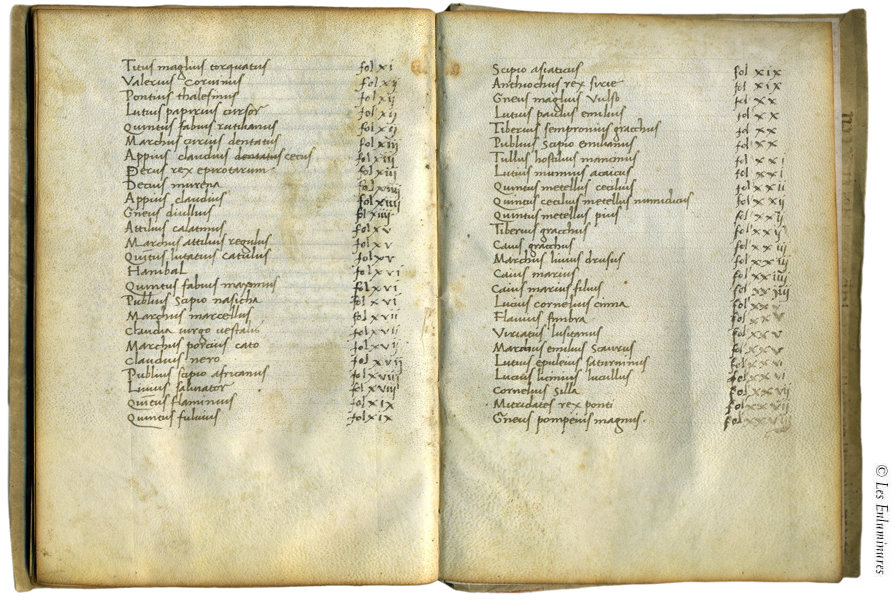 Titus maglius torquatus fol xi
Valerius Corvinus fol xij
Pontius thalesinus fol xij
Lutus papirius cursor fol xij
Quintus fabius rutilianus fol xij
Marchus curius dentatus fol xiij
Appius claudius dentatus cecus fol xiij
Pirrus rex epirotarum fol xiij
Decius murena fol xiiij
Appius claudius fol xiiij
Gneus diullius fol xiiij
Attilius calatinus fol xv
Marchus attilius regulus fol xv
Quintus lutatius catulus fol xv
Hanibal fol xvi
Quintus fabius maximus fol xvi
Publius Scipio nasicha fol xvi
Marchus marcellus fol xvii
Claudia virgo vestalis fol xvii
Marchus porcius cato fol xvii
Claudius nero fol xvij
Publius scipio africanus fol xviij
Livius salinator fol xviij
Quintus flaminius fol xix
Quintus fulvius fol xix
Scipio asiaticus fol xix
Anthiochus rex sirie fol xix
Gneus maglius Vulso fol xx
Lutius paulus emilius fol xx
Tiberius sempronius gracchus fol xx
Publius Scipio emilianus fol xx
Tullus hostilius mancinus fol xxi
Lutius mumius acaicus fol xxi
Quintus metellus cecilius fol xxii
Quintus cecilius metellus numidicus fol xxij
Quintus metellus pius fol xxij
Tiberius gracchus fol xxij
Caius gracchus fol xxiij
Marchus livius drusus fol xxiij
Caius marius fol xxiij
Caius marius filius fol xxiiij
Lucius cornelius cinna fol xxv
Flavius fimbria fol xxv
Viriatus lusitanus fol xxv
Marchus emilius Scaurus fol xxv
Lutius epuleius saturninus fol xxvi
Lucius licinius lucullus fol xxvi
Cornelius Silla fol xxvij
Mitridates rex ponti fol xxvij
Gneus pompeius magnus. fol xxvij
© Les Enluminures